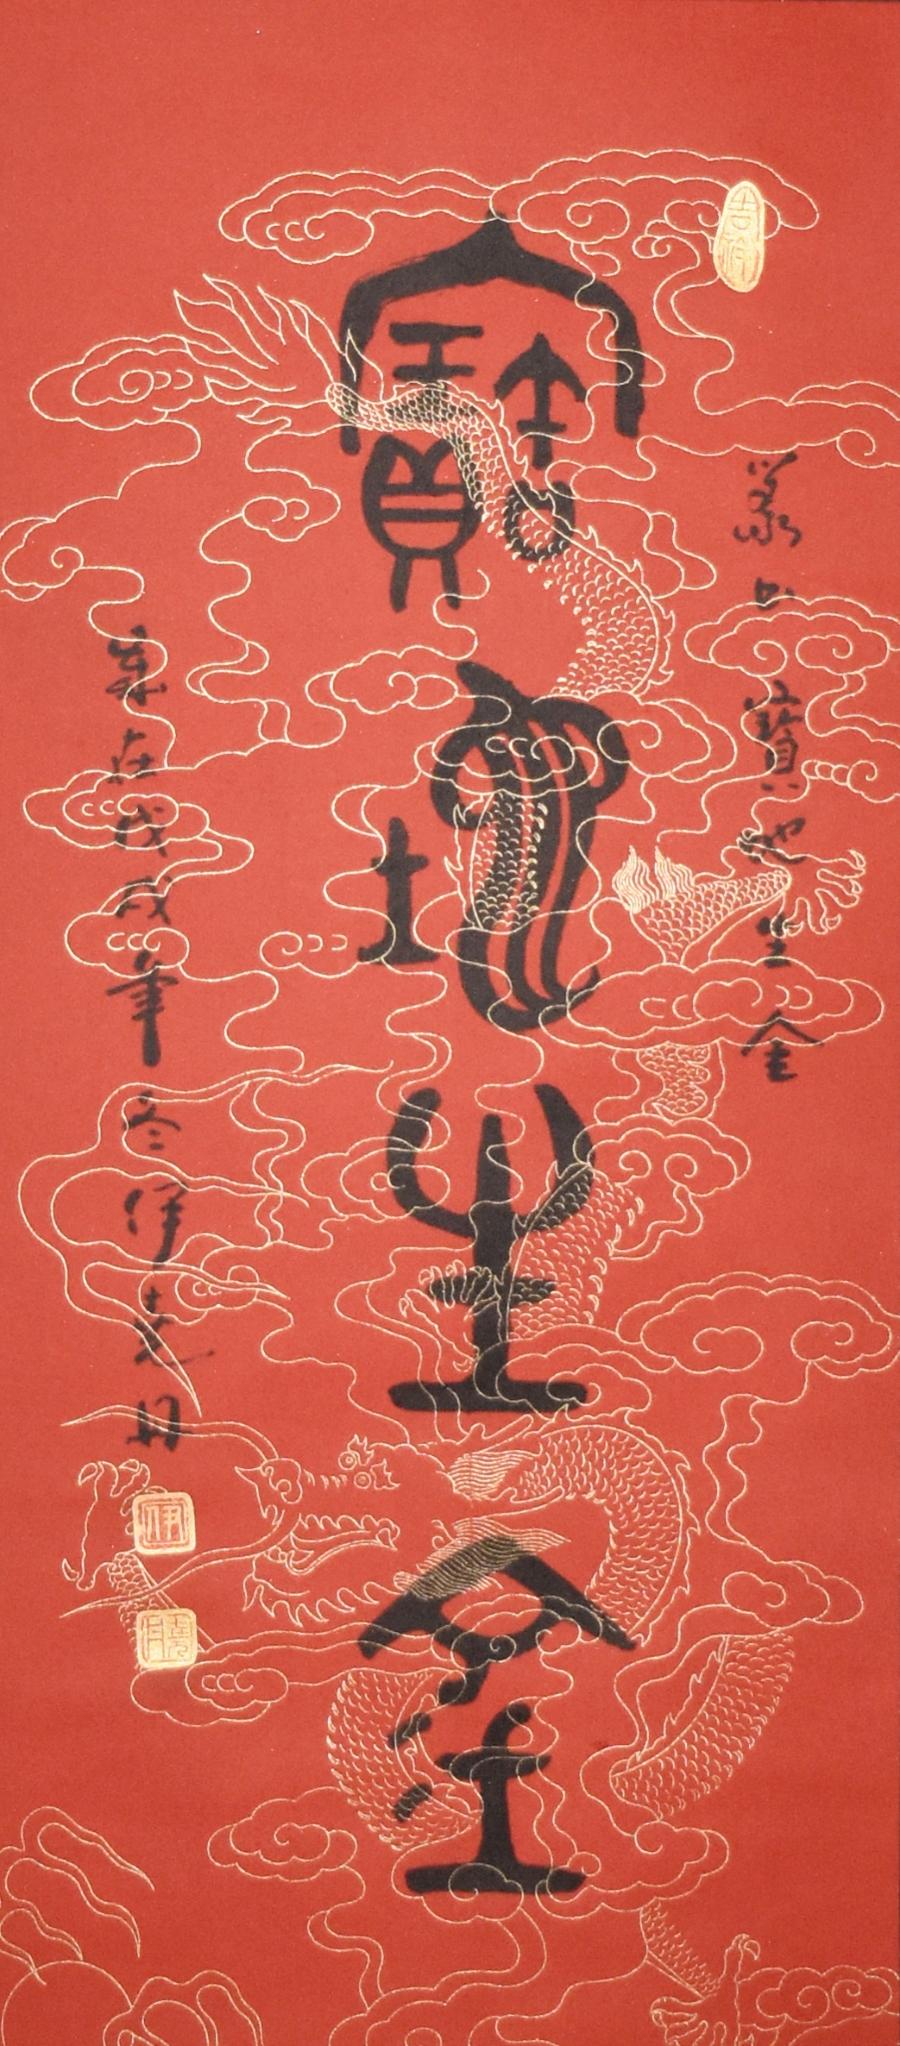 吉祥
篆书寶地生金
寶地生金
岁在戊戌年冬伊
伊